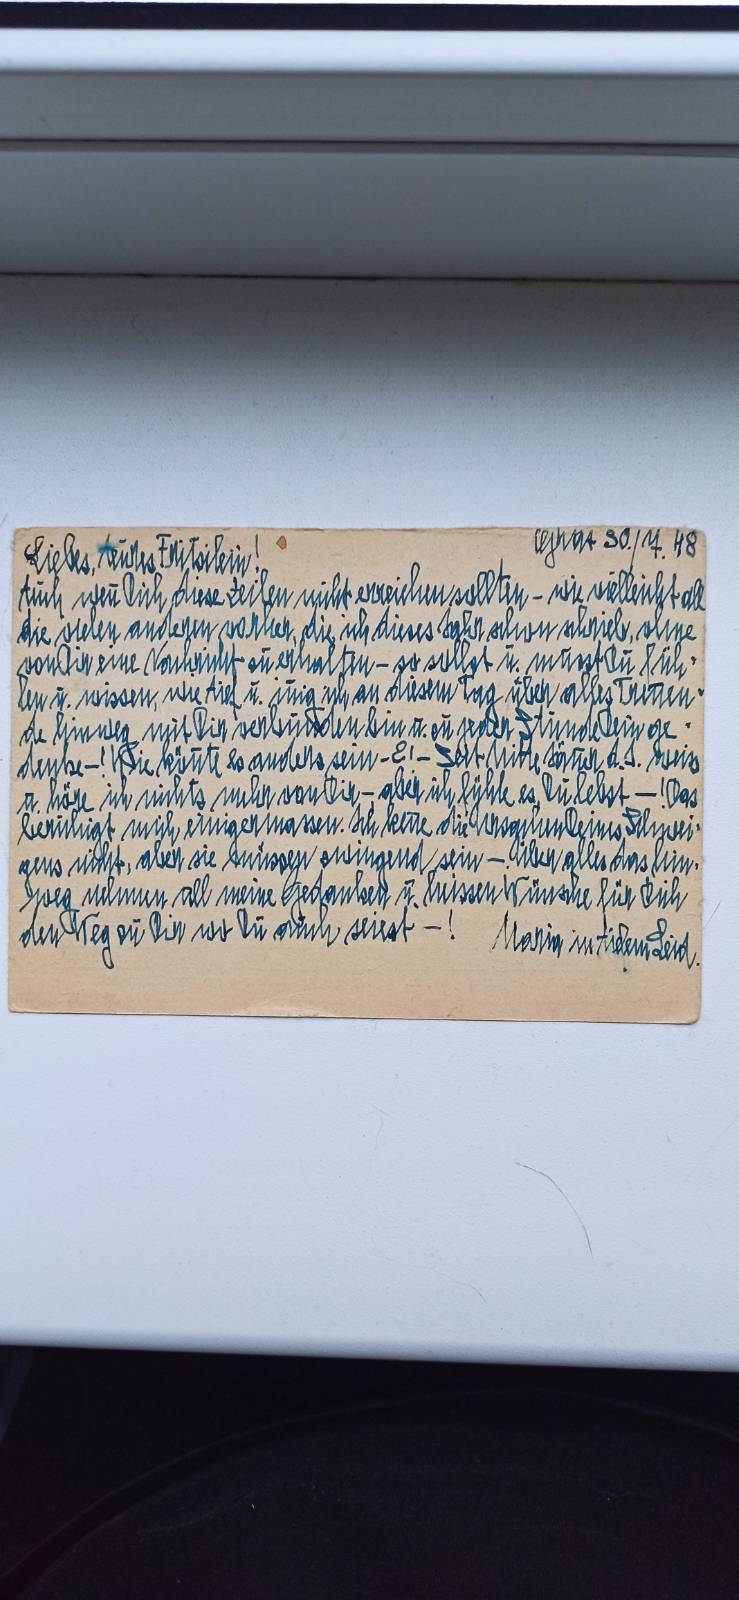 Liebes, gutes Fritzilein! 30./7. 48
Auch wenn Dich diese Zeilen nicht erreichen sollten – wie vielleicht all
die vielen anderen vorher, die ich dieses Jahr schon schrieb, ohne
von Dir eine Nachricht zu erhalten – so sollst u. musst Du füh-
len u. wissen, wie tief u. innig ich an diesem Tag über alles Trennen-
de hinweg mit Dir verbunden bin u. zu jeder Stunde Dein ge-
denke –! Wie könnte es anders sein –?! – Seit Mitte Jänner d. J. weis
u. höre ich nichts mehr von Dir – aber ich fühle es, Du lebst –! Das
beruhigt mich einigermassen. Ich kenne die Ursachen Deines Schwei-
gens nicht, aber sie müssen zwingend sein – Über alles das hin-
weg nehmen all meine Gedanken u. heissen Wünsche für Dich
den Weg zu Dir wo Du auch seiest –! Maria in tiefem Leid.